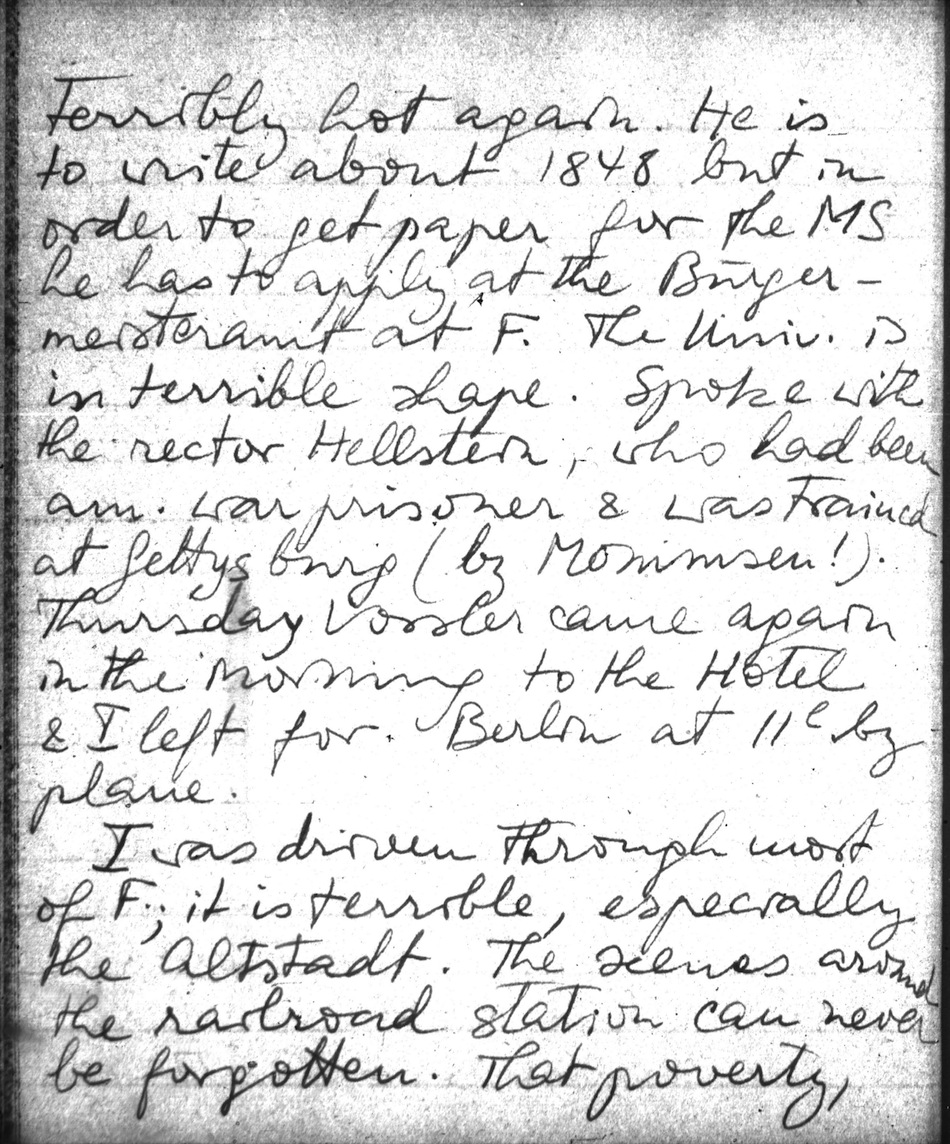 Terribly hot again. He is
to write about 1848 but in
order to get paper for the MS
he has to apply at the Bürger-
meisteramt at F. The Univ. is
in terrible shape. Spoke with
the rector Hellstein, who had been
am. war prisoner & was trained
at Gettysburg (by Mommsen!).
Thursday Vossler came again
in the morning to the Hotel
& I left for Berlin at 11e by
plane.
I was driven through most
of F.; it is terrible, especially
the Altstadt. The scenes around
the railroad station can never
be forgotten. That poverty,